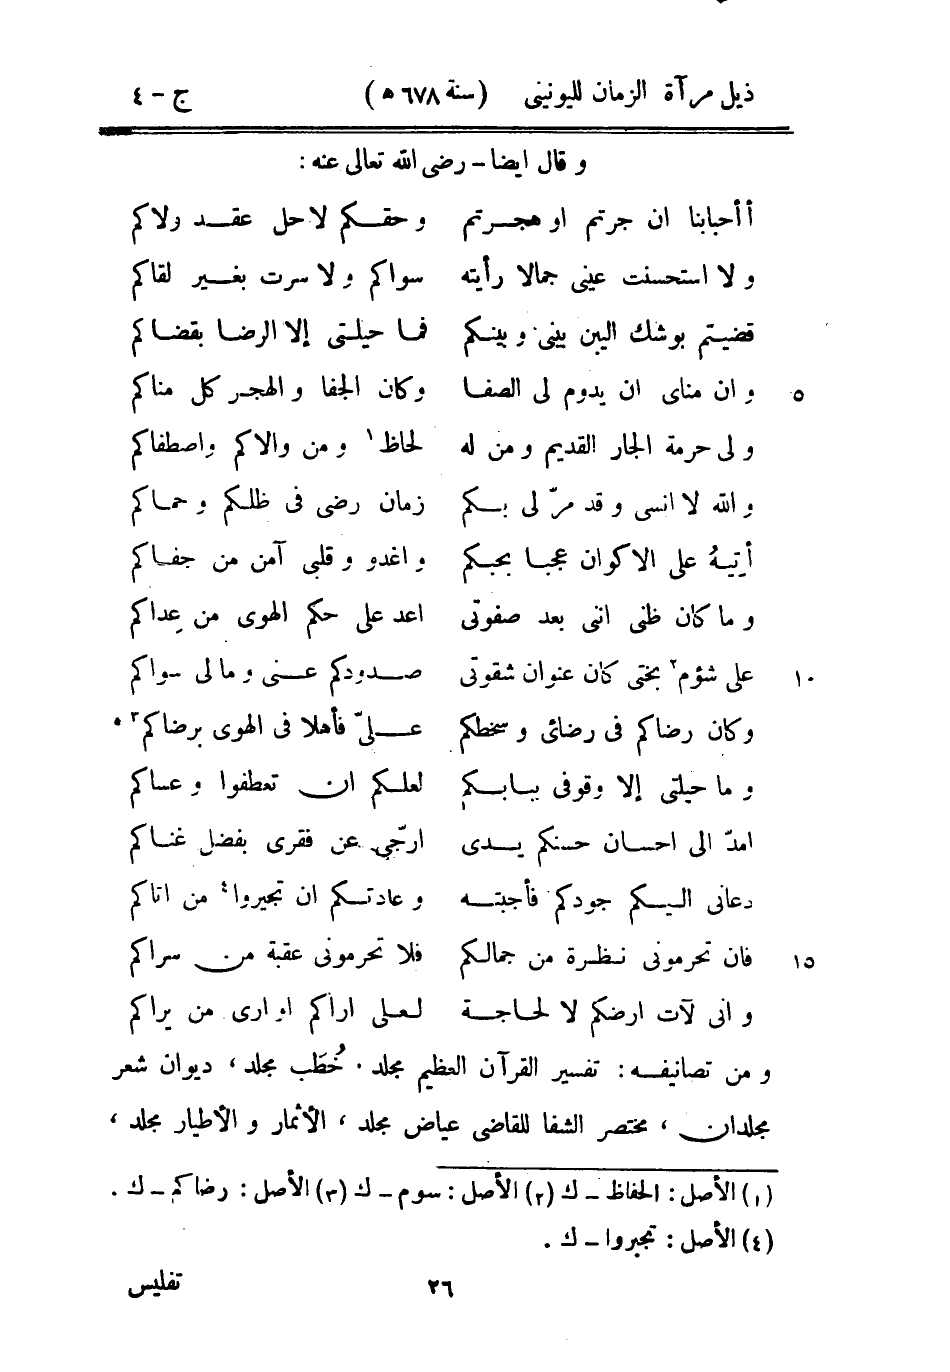 ذيل مرآة الزمان لليونينى (سنة ٦٧٨ ه) ج - ٤
و قال ايضا - رضى الله تعالى عنه :
أأحبابنا ان جرتم او هجرتم و حقكم لا حل عقد ولاكم
و لا استحسنت عينى جمالا رأيته سواكم و لا سرت بغير لقاكم
قضيتم بوشك البين بينى و بينكم فما حيلتى إلا الرضا بقضاكم
و ان مناى ان يدوم لى الصفا وكان الجفا و الهجر كل مناكم ٥
و لى حرمة الجار القديم و من له لحاظ ١ و من والاكم واصطفاكم
و الله لا انسى و قد مرّ لى بكم زمان رضى فى ظلكم و حماكم
أتيهُ على الاكوان عجبا بحبكم و اغدو و قلبى آمن من جفاكم
و ما كان ظنى انى بعد صفوتى اعد على حكم الهوى من عداكم
على شؤم ٢ بختى كان عنوان شقوتى صدودكم عنى و ما لى سواكم ١٠
وكان رضاكم فى رضائى و سخطكم علىّ فأهلا فى الهوى برضاكم ٣ *
و ما حيلتى إلا وقوفى ببابكم لعلكم ان تعطفوا و عساكم
امدّ الى احسان حسنكم يدى ارجّى عن فقرى بفضل غناكم
دعانى اليكم جودكم فأجبته و عادتكم ان تجيروا ٤ من اتاكم
فان تحرمونى نظرة من جمالكم فلا تحرمونى عقبة من سراكم ١٥
و انى لآت ارضكم لا لحاجة لعلى اراكم او ارى من يراكم
و من تصانيفه : تفسير القرآن العظيم مجلد . خُطَب مجلد ، ديوان شعر
مجلدان ، مختصر الشفا للقاضى عياض مجلد ، الأثمار و الأطيار مجلد ،
(١) الأصل : الحفاظ - ك (٢) الأصل : سوم - ك (٣) الأصل : رضاكم - ك .
(٤) الأصل : تجبروا - ك .
٢٦ تفليس